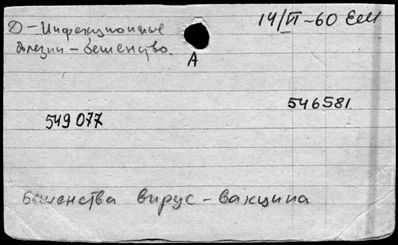 Д - Инфекционные
болезни - бешенство.
14/VI - 60 ЕМ
А
546581
549077
Бешенства вирус - вакцина